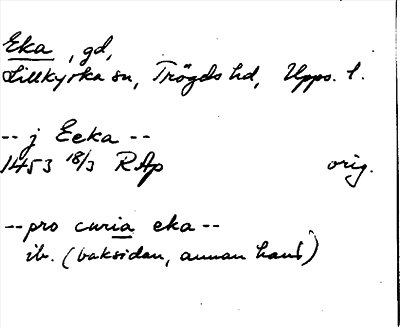 Eka, gd,
Lillkyrka sn, Trögds hd, Upps. l.
-- j Eeka --
1453 18/3 RAp orig.
-- pro curia eka --
ib. (baksidan, annan hand)